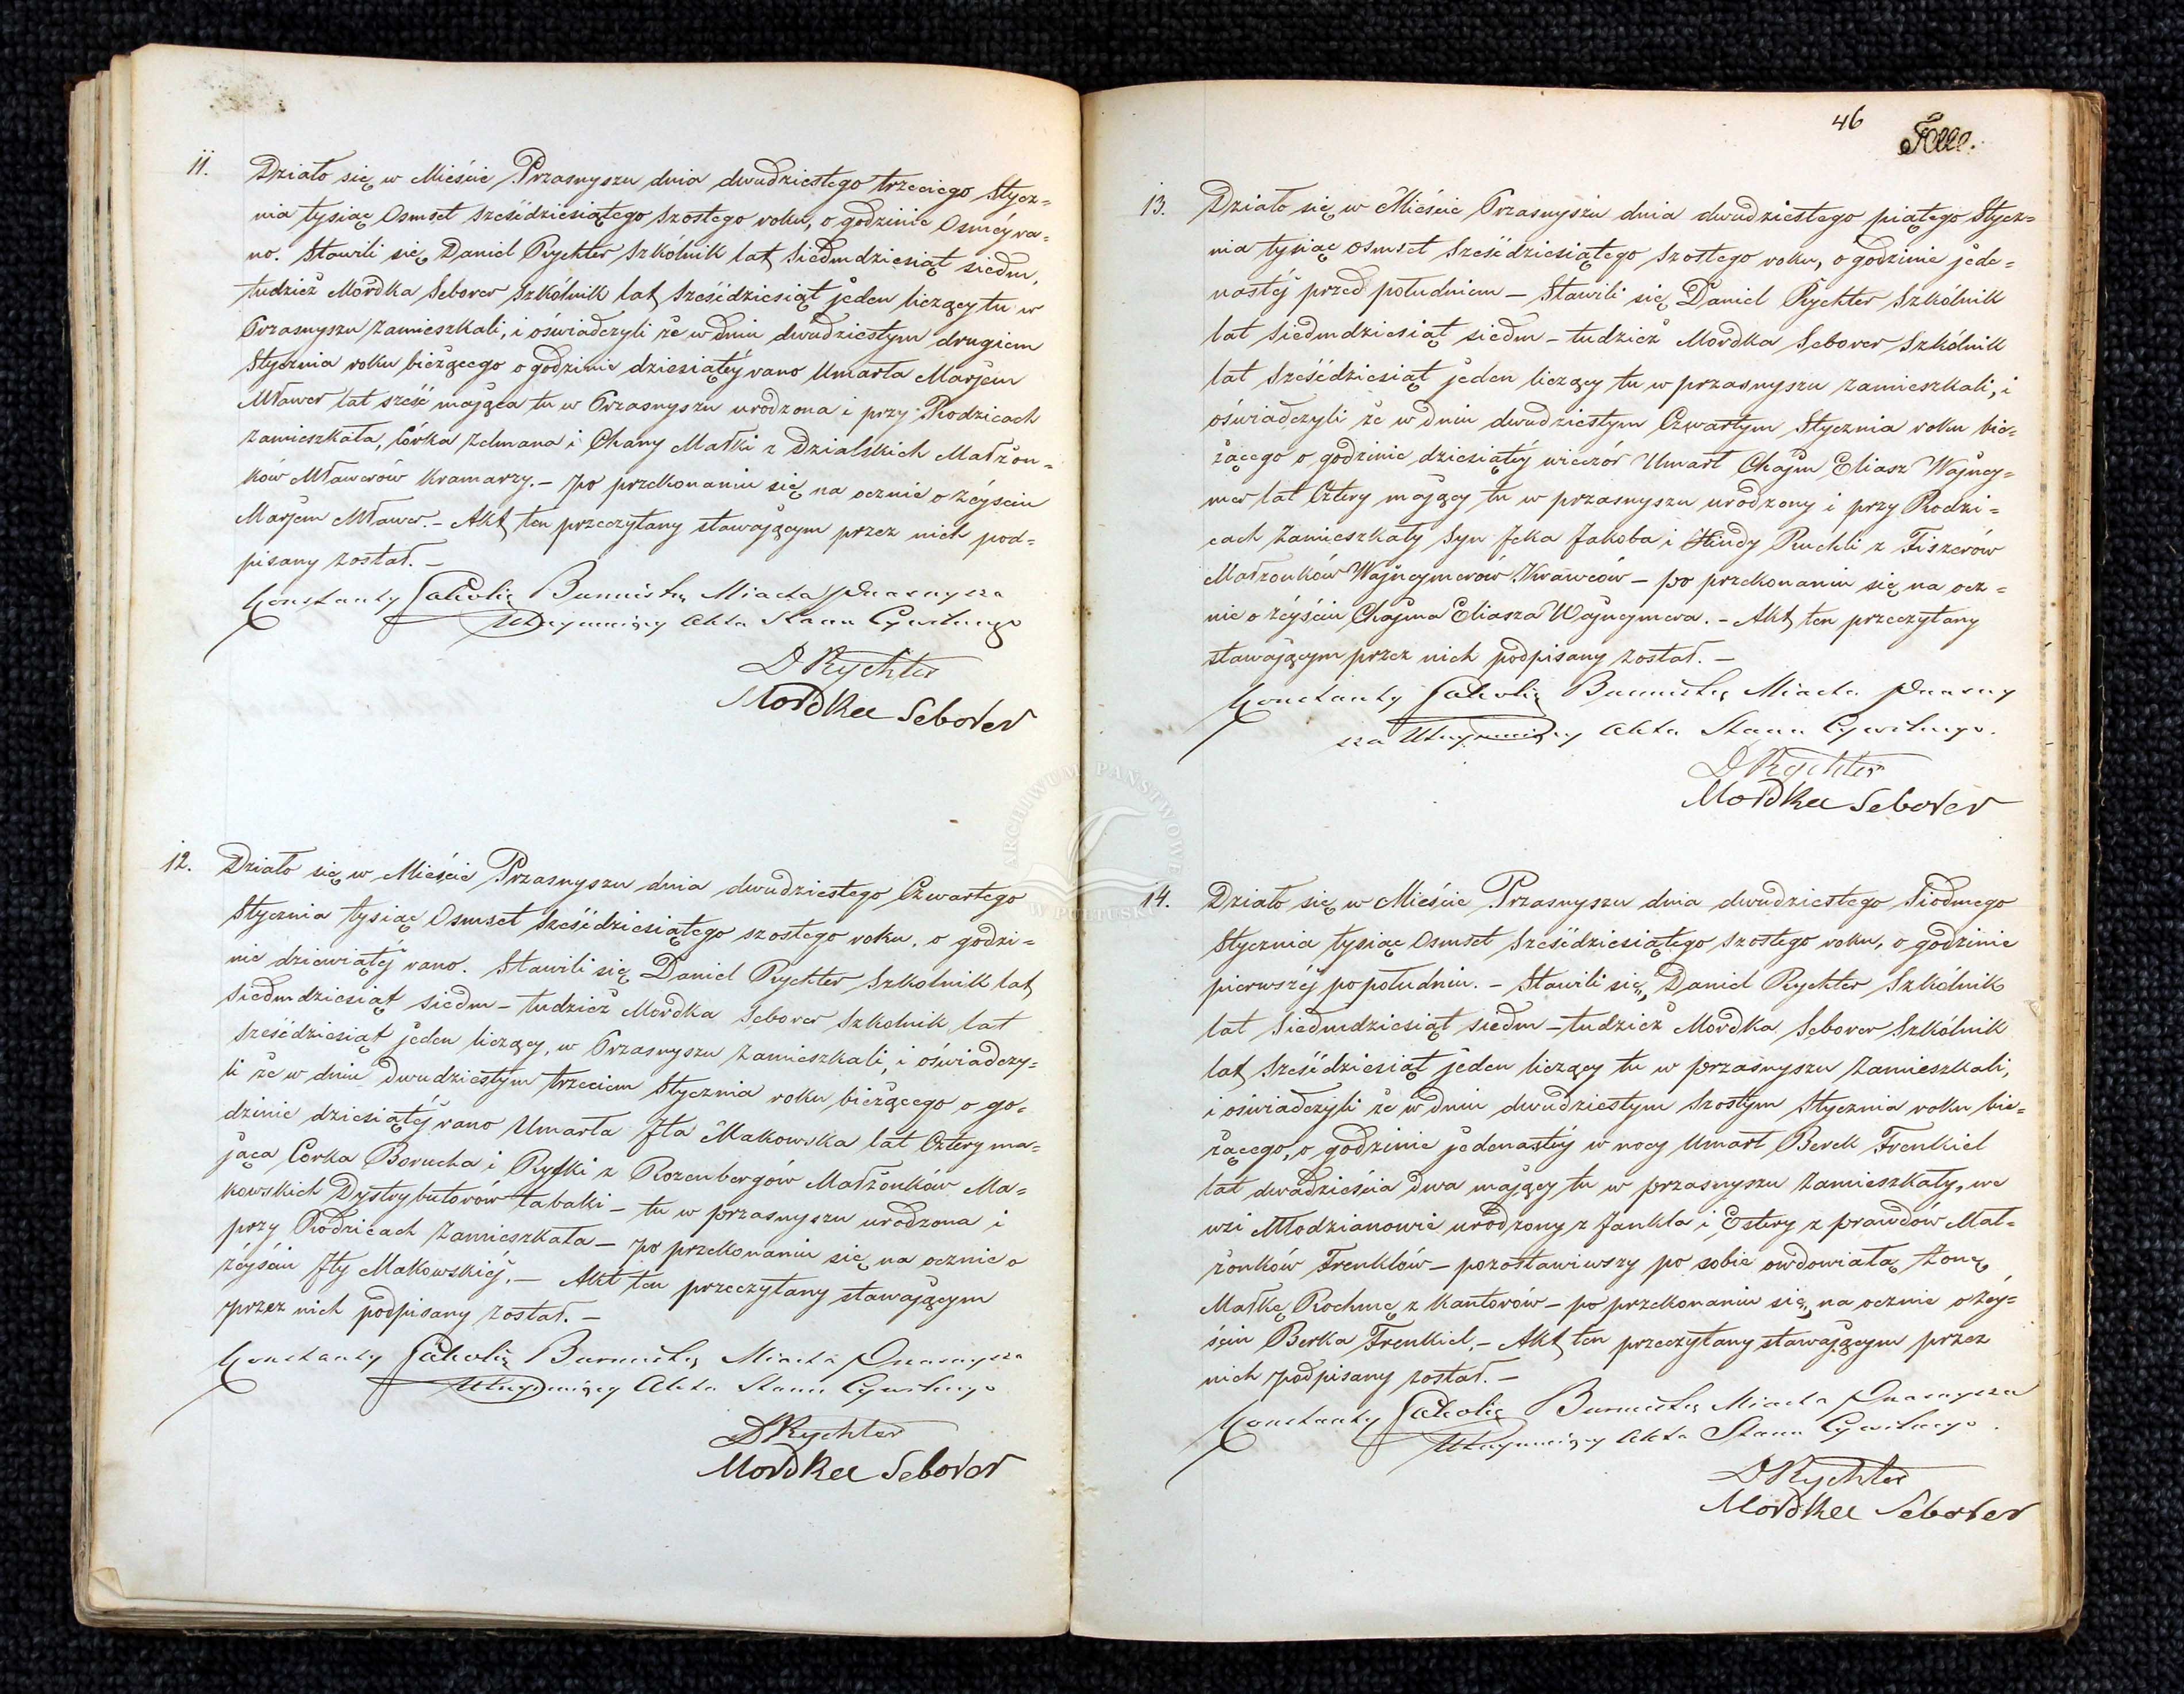 11.
Działo się w Mieście Przasnyszu dnia dwudziestego trzeciego Stycz=
nia tysiąc Osmset sześćdziesiątego szostego roku, o godzinie Osméy ra=
no. Stawili się Daniel Rychter Szkólnik lat siedmdziesiąt siedm,
tudzież Mordka Seborer Szkólnik lat sześćdziesiąt jeden liczący tu w
Przasnyszu zamieszkali, i oświadczyli że w dniu dwudziestym drugiem
Stycznia roku bieżącego o godzinie dziesiątéy rano Umarła Marjem
Mławer lat sześć mająca tu w Przasnyszu urodzona i przy Rodzicach
zamieszkała, Córka Zelmana i Chany Małki z Dzialskich Małżon=
ków Mławerów Kramarzy. - po przekonaniu się na ocznie o Zéyściu
Marjem Mławer. - Akt ten przeczytany stawającym przez nich pod=
pisany został. -
Konstanty Burmistrz Miasta Przasnysza
Utrzymuiący Akta Stanu Cywilnego
D Rychter
Mordka Seborer
12.
Działo się w Mieście Przasnyszu dnia dwudziestego Czwartego
Stycznia tysiąc Osmset sześćdziesiątego szostego roku, o godzi=
nie dziewiątéj rano. Stawili się Daniel Rychter Szkolnik lat
siedmdziesiąt siedm - tudzież Mordka Seborer Szkolnik lat
sześćdziesiąt jeden liczący, w Przasnyszu zamieszkali, i oświadczy=
li że w dniu dwudziestym trzeciem Stycznia roku bieżącego o go=
dzinie dziesiątéj rano Umarła Jta Makowska lat Cztery ma=
jąca Córka Borucha i Ryfki z Rozenbergów Małżonków Ma=
kowskich Dystrybutorów tabaki - tu w przasnyszu urodzona i
przy Rodzicach zamieszkała - po przekonaniu się na ocznie o
zéyściu Jty Makowskiéj. - Akt ten przeczytany stawającym
przez nich podpisany został. -
Konstanty Burmistrz Miasta Przasnysza
Utrzymuiący Akta Stanu Cywilnego
D Rychter
Mordka Seborer
46
13.
Działo się w Mieście Przasnyszu dnia dwudziestego piątego Stycz=
nia tysiąc osmset sześćdziesiątego szostego roku, o godzinie jede=
nastéj przed południem - Stawili się Daniel Rychter Szkólnik
lat siedmdziesiąt siedm - tudzież Mordka Seborer Szkólnik
lat sześćdziesiąt jeden liczący tu w przasnyszu zamieszkali, i
oświadczyli że w dniu dwudziestym Czwartym Stycznia roku bie=
żącego o godzinie dziesiątéy wieczór Umarł Chajm Eliasz Wajney=
mer lat Cztery mający tu w przasnyszu urodzony i przy Rodzi=
cach zamieszkały syn Jcka Jakoba i Hindy Ruchli z Fiszerów
Małżonków Wajneymerów Krawców - po przekonaniu się na ocz=
nie o zéyściu Chajma Eliasza Wajneymera. - Akt ten przeczytany
stawającym przez nich podpisany został. -
Konstanty Burmistrz Miasta Przasny
sza Utrzymuiący Akta Stanu Cywilnego.
D Rychter
Mordka Seborer
14.
Działo się w Mieście Przasnyszu dnia dwudziestego Siódmego
Stycznia tysiąc Osmset sześćdziesiątego szostego roku, o godzinie
pierwszéj popołudniu. - Stawili się, Daniel Rychter Szkólnik
lat siedmdziesiąt siedm - tudzież Mordka Seborer Szkólnik
lat sześćdziesiąt jeden liczący tu w przasnyszu zamieszkali,
i oświadczyli że w dniu dwudziestym szostym Stycznia roku bie=
żącego, o godzinie jedenastéj w nocy Umarł Berek Frenkiel
lat dwadzieścia dwa mający tu w przasnyszu zamieszkały, we
wsi Młodzianowie urodzony z Jankla i Estery z prawdów Mał=
żonków Frenklów - pozostawiwszy po sobie owdowiałą żonę
Małkę Rochmę z Kantorów - po przekonaniu się, na ocznie o zéy=
ściu Berka Frenkiel, - Akt ten przeczytany stawającym przez
nich podpisany został. -
Konstanty Burmistrz Miasta Przasnysza
Utrzymuiący Akta Stanu Cywilnego.
D Rychter
Mordka Seborer
ARCHIWUM PAŃSTWOWE
W PUŁTUSKU